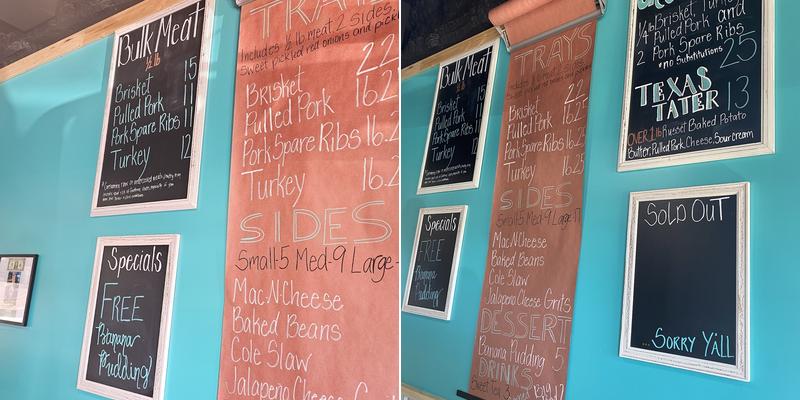 Bulk Meat
½ lb
Brisket 15
Pulled Pork 11
Pork Spare Ribs 11
Turkey 12
Specials
FREE
Banana
Pudding!
TRAYS
Includes ½ lb meat, 2 sides,
sweet pickled red onions and pickles
Brisket 22
Pulled Pork 16.2
Pork Spare Ribs 16.2
Turkey 16.2
SIDES
Small-5 Med-9 Large-
Mac N Cheese
Baked Beans
Cole Slaw
Jalapeno Cheese
Bulk Meat
½ lb
Brisket 15
Pulled Pork 11
Pork Spare Ribs 11
Turkey 12
Specials
FREE
Banana
Pudding!
TRAYS
Brisket 22
Pulled Pork 16.25
Pork Spare Ribs 16.25
Turkey 16.25
SIDES
Small-5 Med-9 Large-17
Mac N Cheese
Baked Beans
Cole Slaw
Jalapeno Cheese Grits
DESSERT
Banana Pudding 5
DRINKS
Sweet Tea 3
¼ lb Brisket, Turkey
Pulled Pork and
2 Pork Spare Ribs
*no Substitutions 25
TEXAS
TATER 13
OVER 1 lb Russet Baked Potato
Butter, Pulled Pork, Cheese, Sour cream
SOLD OUT
...SORRY Y'ALL